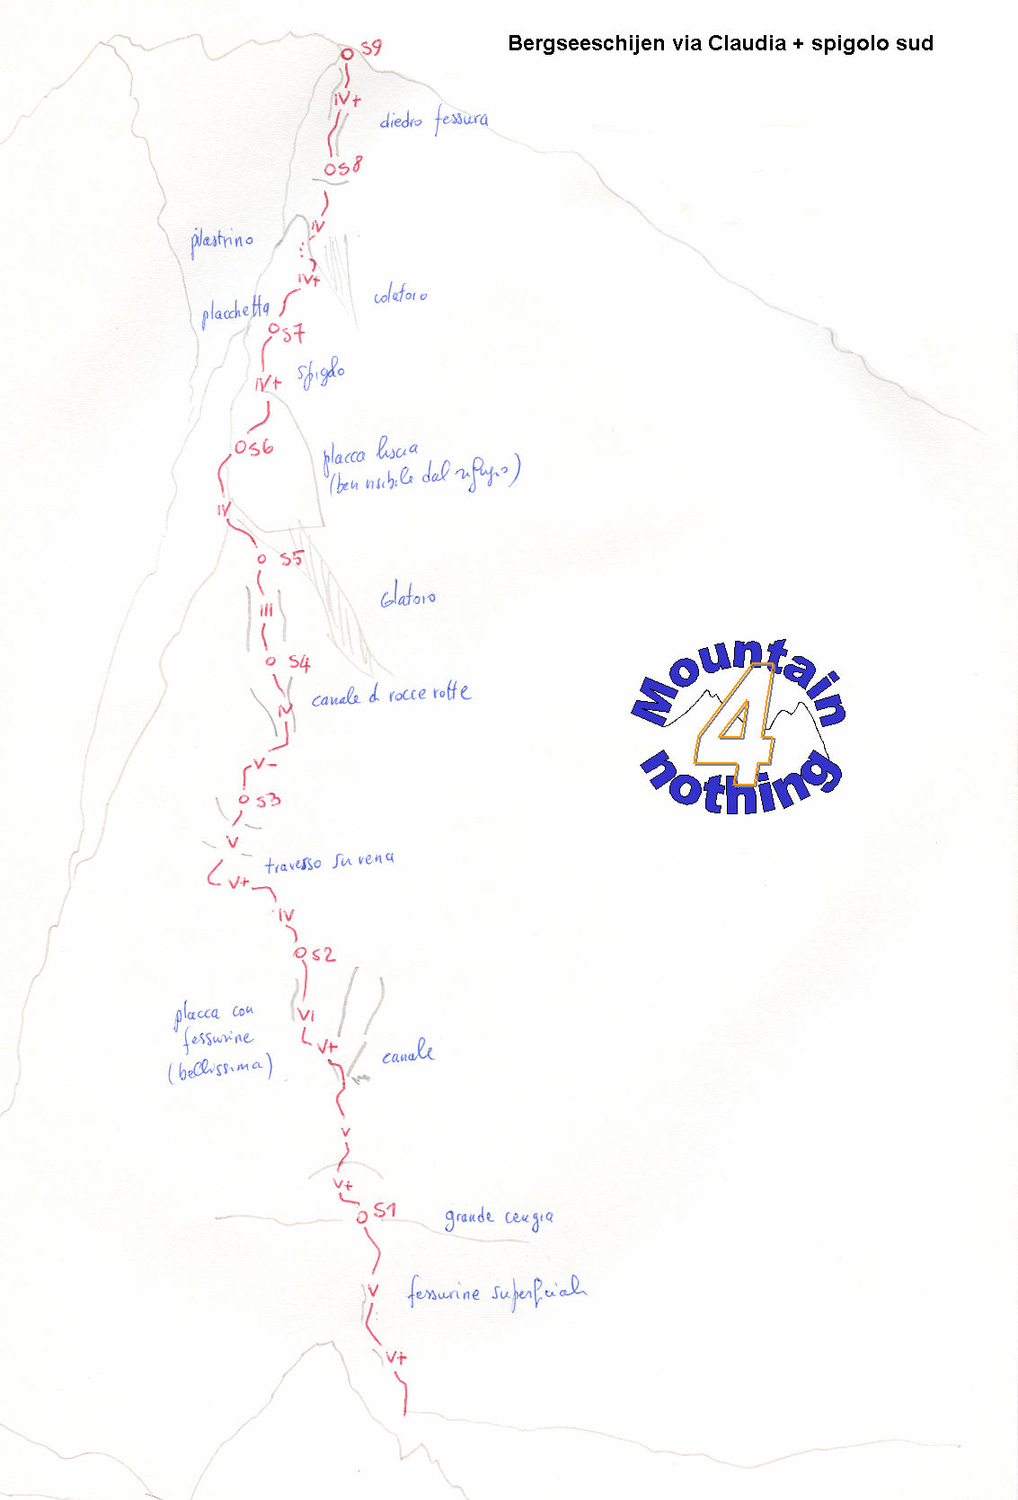 Bergseeschijen via Claudia + spigolo sud
S9
IV+
diedro fessura
S8
IV
pilastrino
IV+
colatoio
placchetta
S7
spigolo
IV+
S6
placca liscia
(ben visibile dal rifugio)
IV
S5
Colatoio
III
S4
canale di rocce rotte
IV
V-
S3
V
travesso su vena
V+
IV
S2
placca con
fessurine
(bellissima)
VI
V+
canale
V
V+
S1
grande cengia
V
fessurine superficiali
V+
Mountain
4
nothing